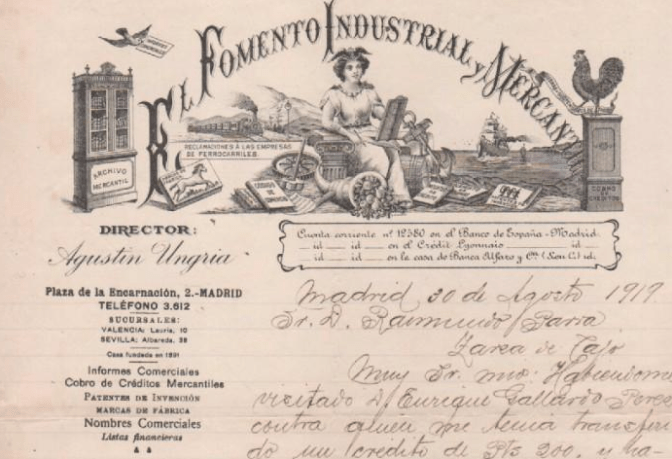 El Fomento Industrial y Mercantil
RECLAMACIONES Á LAS EMPRESAS
DE FERROCARRILES
ARCHIVO
MERCANTIL
CODIGO
DE
COMERCIO
COBRO
DE
CREDITOS
DIRECTOR:
Agustín Ungría
Cuenta corriente nº 12380 en el Banco de España - Madrid.
id — id — en el Crédit Lyonnais — id —
id — id — en la casa de Banca Alfaro y Cª (Son C.) id.
Plaza de la Encarnación, 2.-MADRID
TELÉFONO 3.612
SUCURSALES:
VALENCIA: Lauria, 10
SEVILLA: Albareda, 38
Casa fundada en 1891
Informes Comerciales
Cobro de Créditos Mercantiles
PATENTES DE INVENCIÓN
MARCAS DE FÁBRICA
Nombres Comerciales
Listas financieras
Madrid 30 de Agosto 1919.
Sr. D. Raimundo Parra
Zarza de Tajo
Muy Sr. mio: Habiendome
visitado D. Enrique Gallardo Perez
contra quien me tenia transferi-
do un credito de Pts 200, y ha-